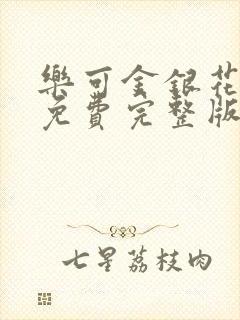 樂可金銀花
免費完整版
七星荔枝肉